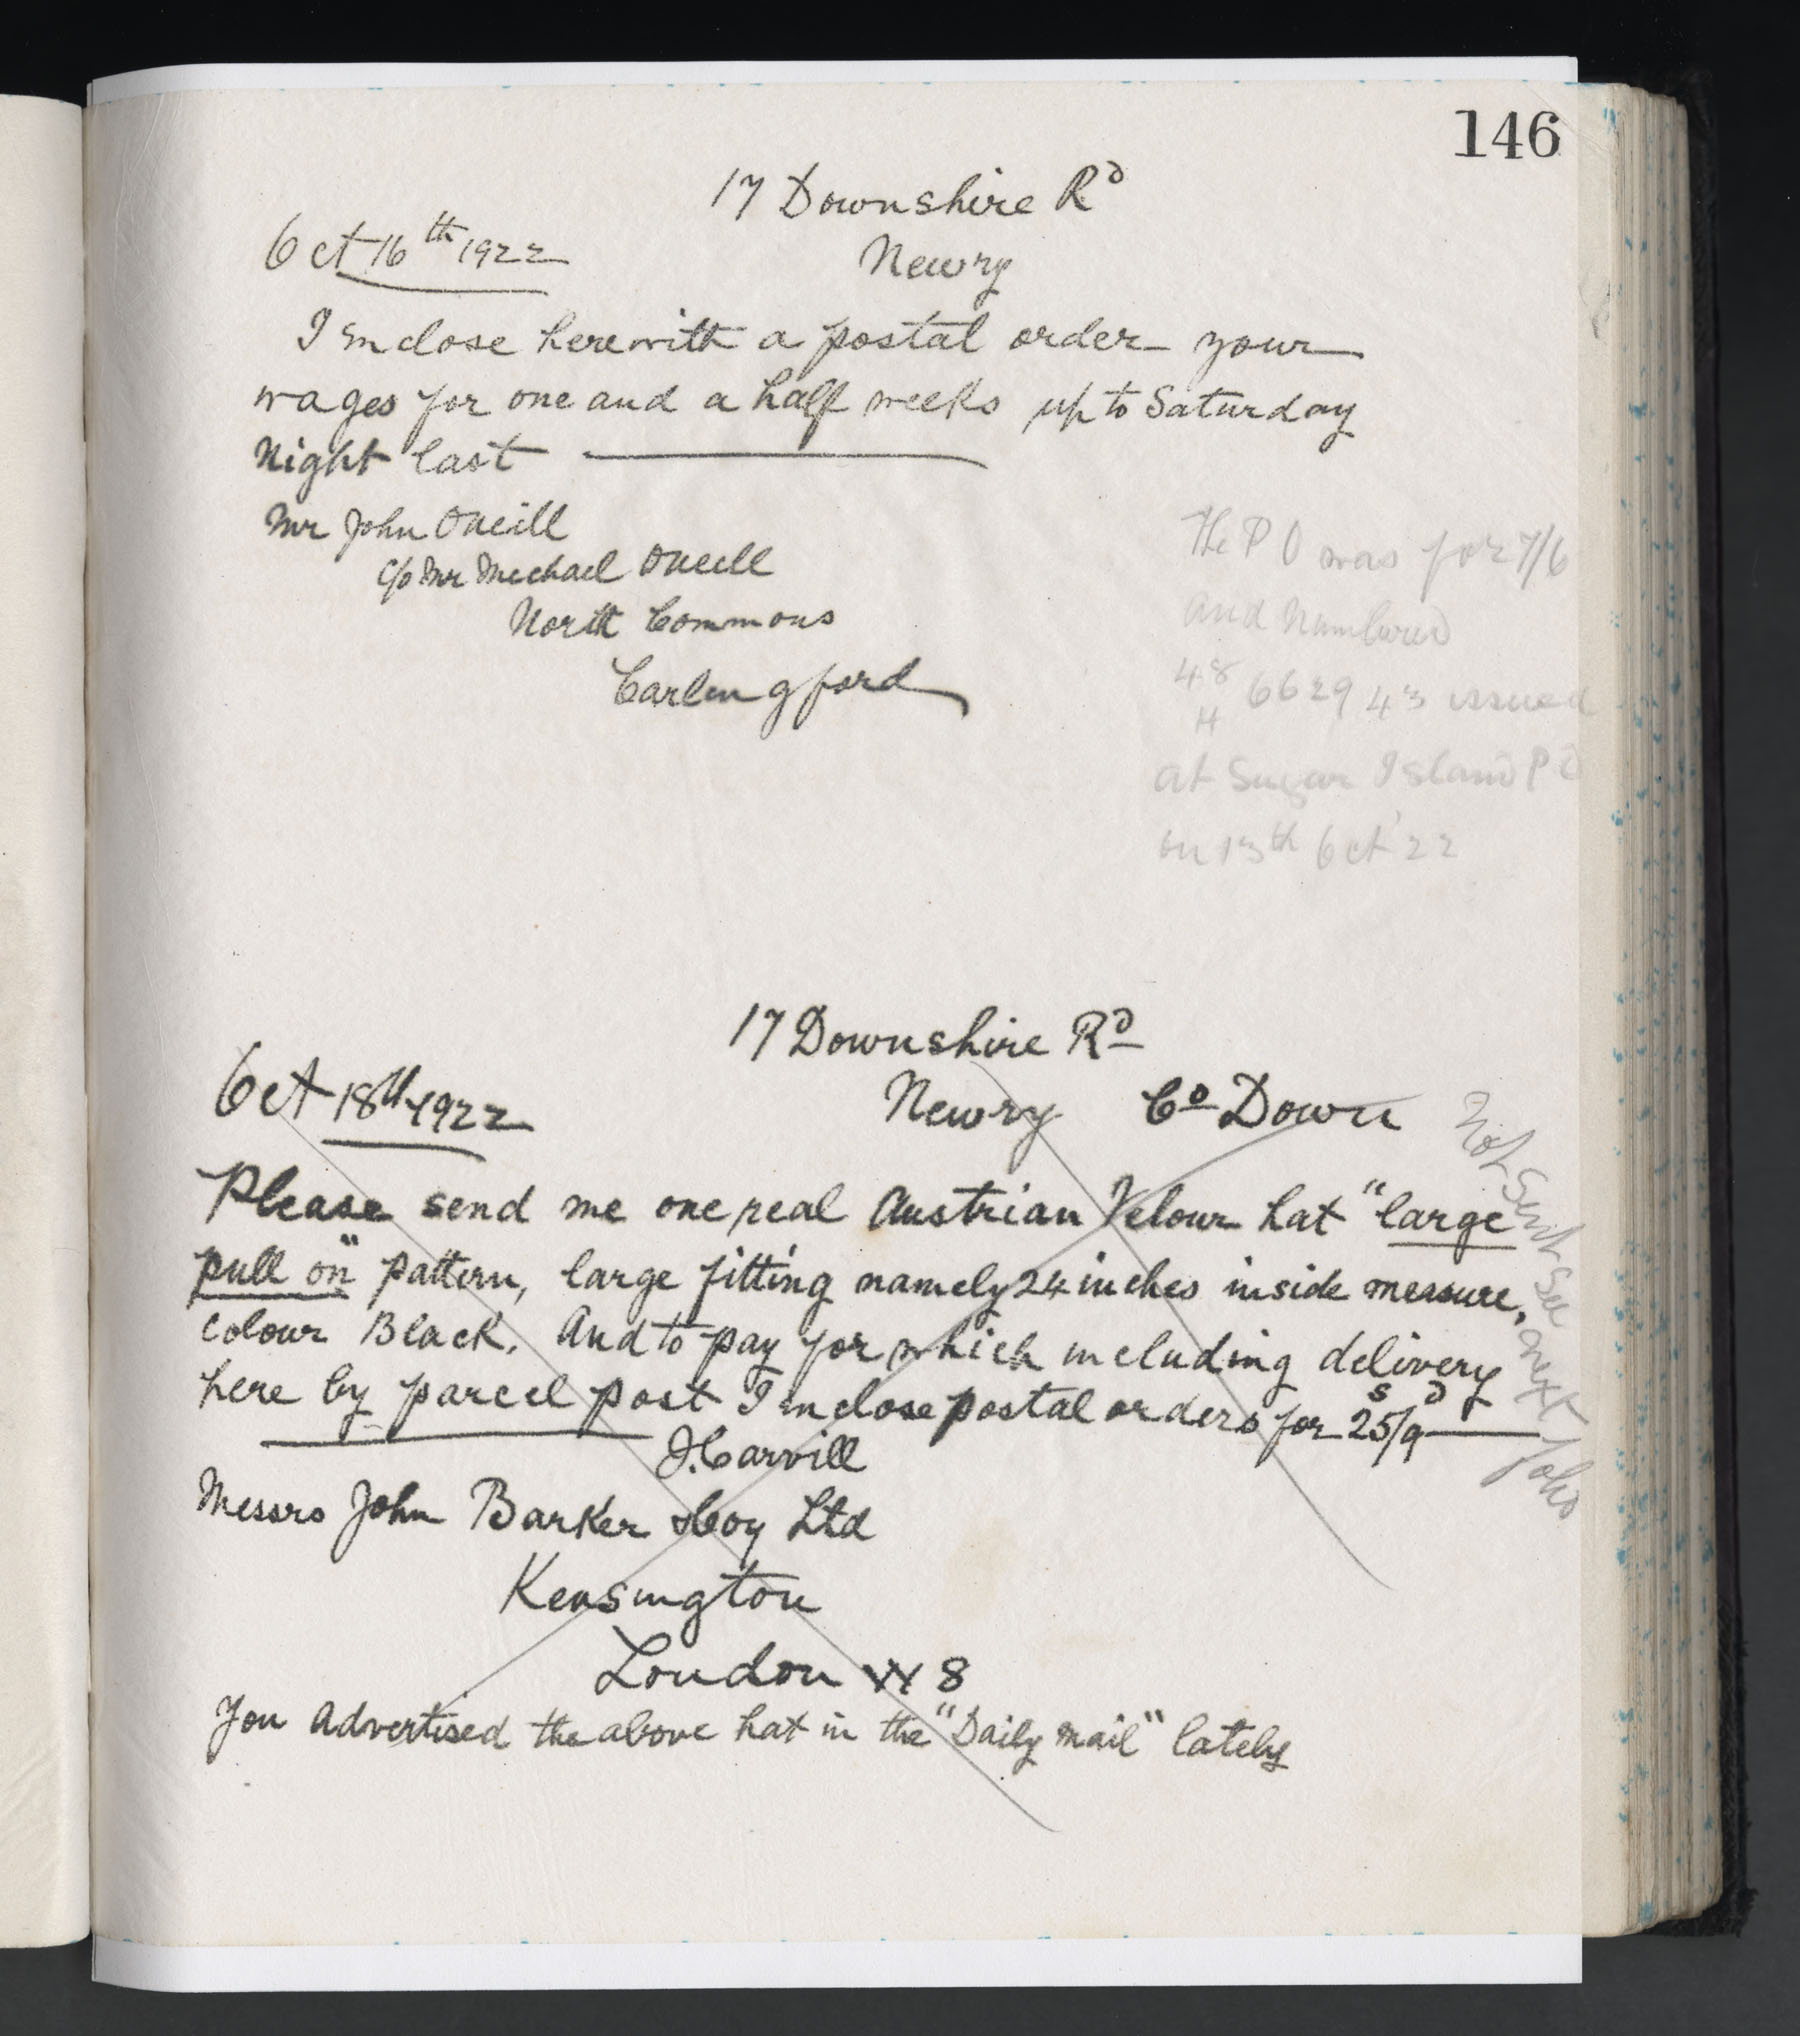 146
17 Downshire Rd
Newry
Oct 16th 1922
I enclose herewith a postal order your
wages for one and a half weeks up to Saturday
Night last
Mr John ONeill
c/o Mr Michael ONeill
North Commons
Carlingford
The P O was for 7/6
and Numbered
48/H 662943 issued
at Sugar Island P O
on 13th Oct '22
17 Downshire Rd
Newry Co Down
Oct 18th 1922
Please send me one real Austrian Velour hat "large
pull on" pattern, large fitting namely 24 inches inside measure,
Colour Black. And to pay for which including delivery
here by parcel post I enclose postal orders for 25s/9d
J. Carvill
Messrs John Barker & Coy Ltd
Kensington
London W 8
You advertised the above hat in the "Daily Mail" lately
Not Sent See next folio